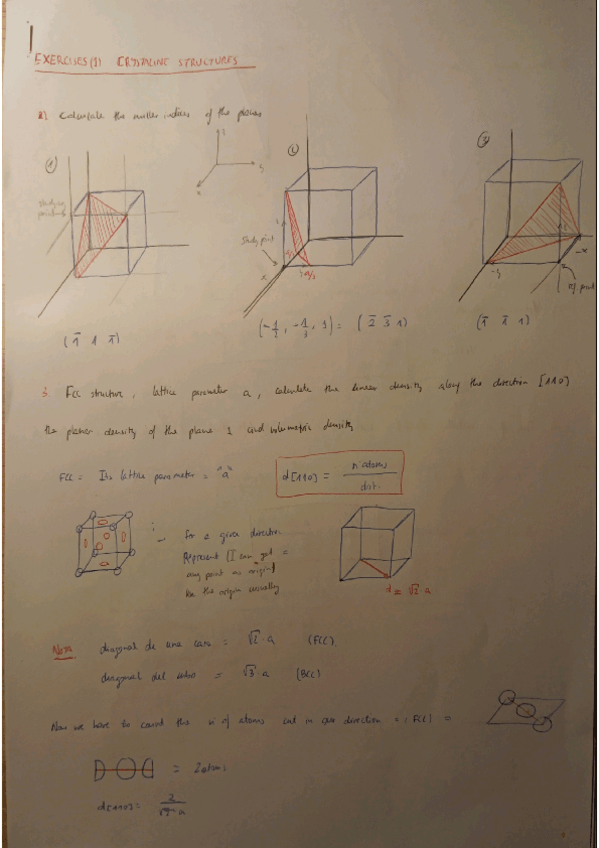 EXERCISES (1) CRYSTALINE STRUCTURES
2) Calculate the miller indices of the planes
① ② ③
z
y
x
Study point
x
a/3
-y
-x
ref. point
(1̄ 1 1̄)
(-1/2, -1/3, 1) = (2̄ 3̄ 1)
(1̄ 1̄ 1)
3. FCC structure, lattice parameter a, calculate the linear density along the direction [110]
the planar density of the plane 1 and volumetric density
FCC = Its lattice parameter = "a"
d[110] = nº atoms / dist.
For a given direction
Represent (I can get =
any point as origin)
the origin usually
d = √2 · a
Nota diagonal de una cara = √2 · a (FCC)
diagonal del cubo = √3 · a (BCC)
Now we have to count the nº of atoms cut in our direction = (FCC) =
= 2 atoms
d[110] = 2 / √2 a